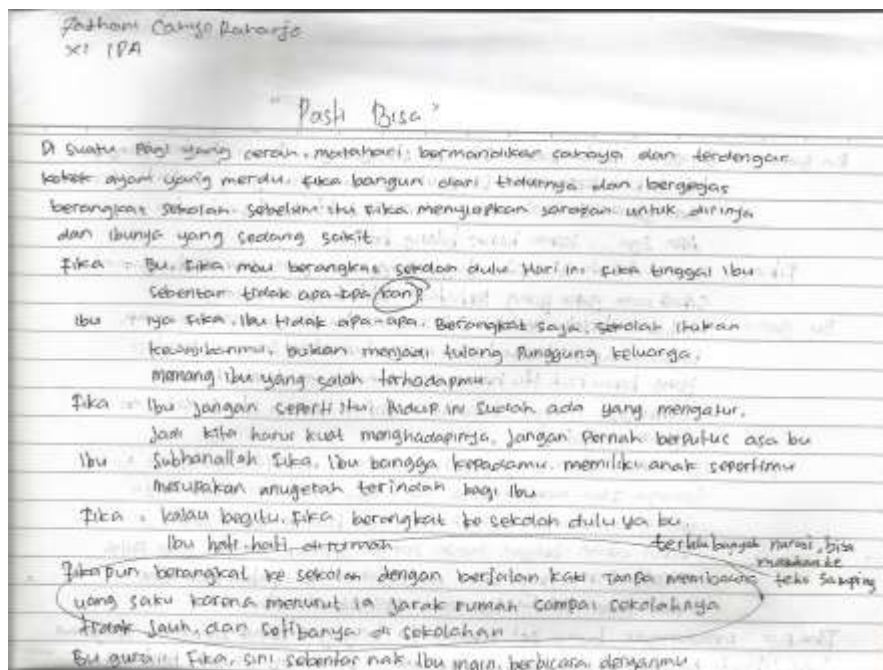 Fathoni Cahyo Raharjo
XI IPA
"Pasti Bisa"
Di suatu pagi yang cerah, matahari bermandikan cahaya dan terdengar
kokok ayam yang merdu. Fika bangun dari tidurnya dan bergegas
berangkat sekolah. sebelum itu Fika menyiapkan sarapan untuk dirinya
dan ibunya yang sedang sakit.
Fika : Bu, Fika mau berangkat sekolah dulu. Hari ini Fika tinggal Ibu
sebentar tidak apa-apa kan?
Ibu : Iya Fika, Ibu tidak apa-apa. Berangkat saja, sekolah itukan
kewajibanmu, bukan menjadi tulang punggung keluarga,
memang ibu yang salah terhadapmu
Fika : Ibu jangan seperti itu, Hidup ini sudah ada yang mengatur,
jadi kita harus kuat menghadapinya, jangan pernah berputus asa bu
Ibu : Subhanallah Fika, Ibu bangga kepadamu. memiliki anak sepertimu
merupakan anugerah terindah bagi Ibu
Fika : kalau begitu, Fika berangkat ke sekolah dulu ya bu,
Ibu hati-hati dirumah
terlalu banyak narasi, bisa
teks samping
Fika pun berangkat ke sekolah dengan berjalan kaki tanpa membawa
uang saku karena menurut ia jarak rumah sampai sekolahnya
tidak jauh, dan setibanya di sekolahan
Bu guru : Fika, sini sebentar nak Ibu ingin berbicara denganmu